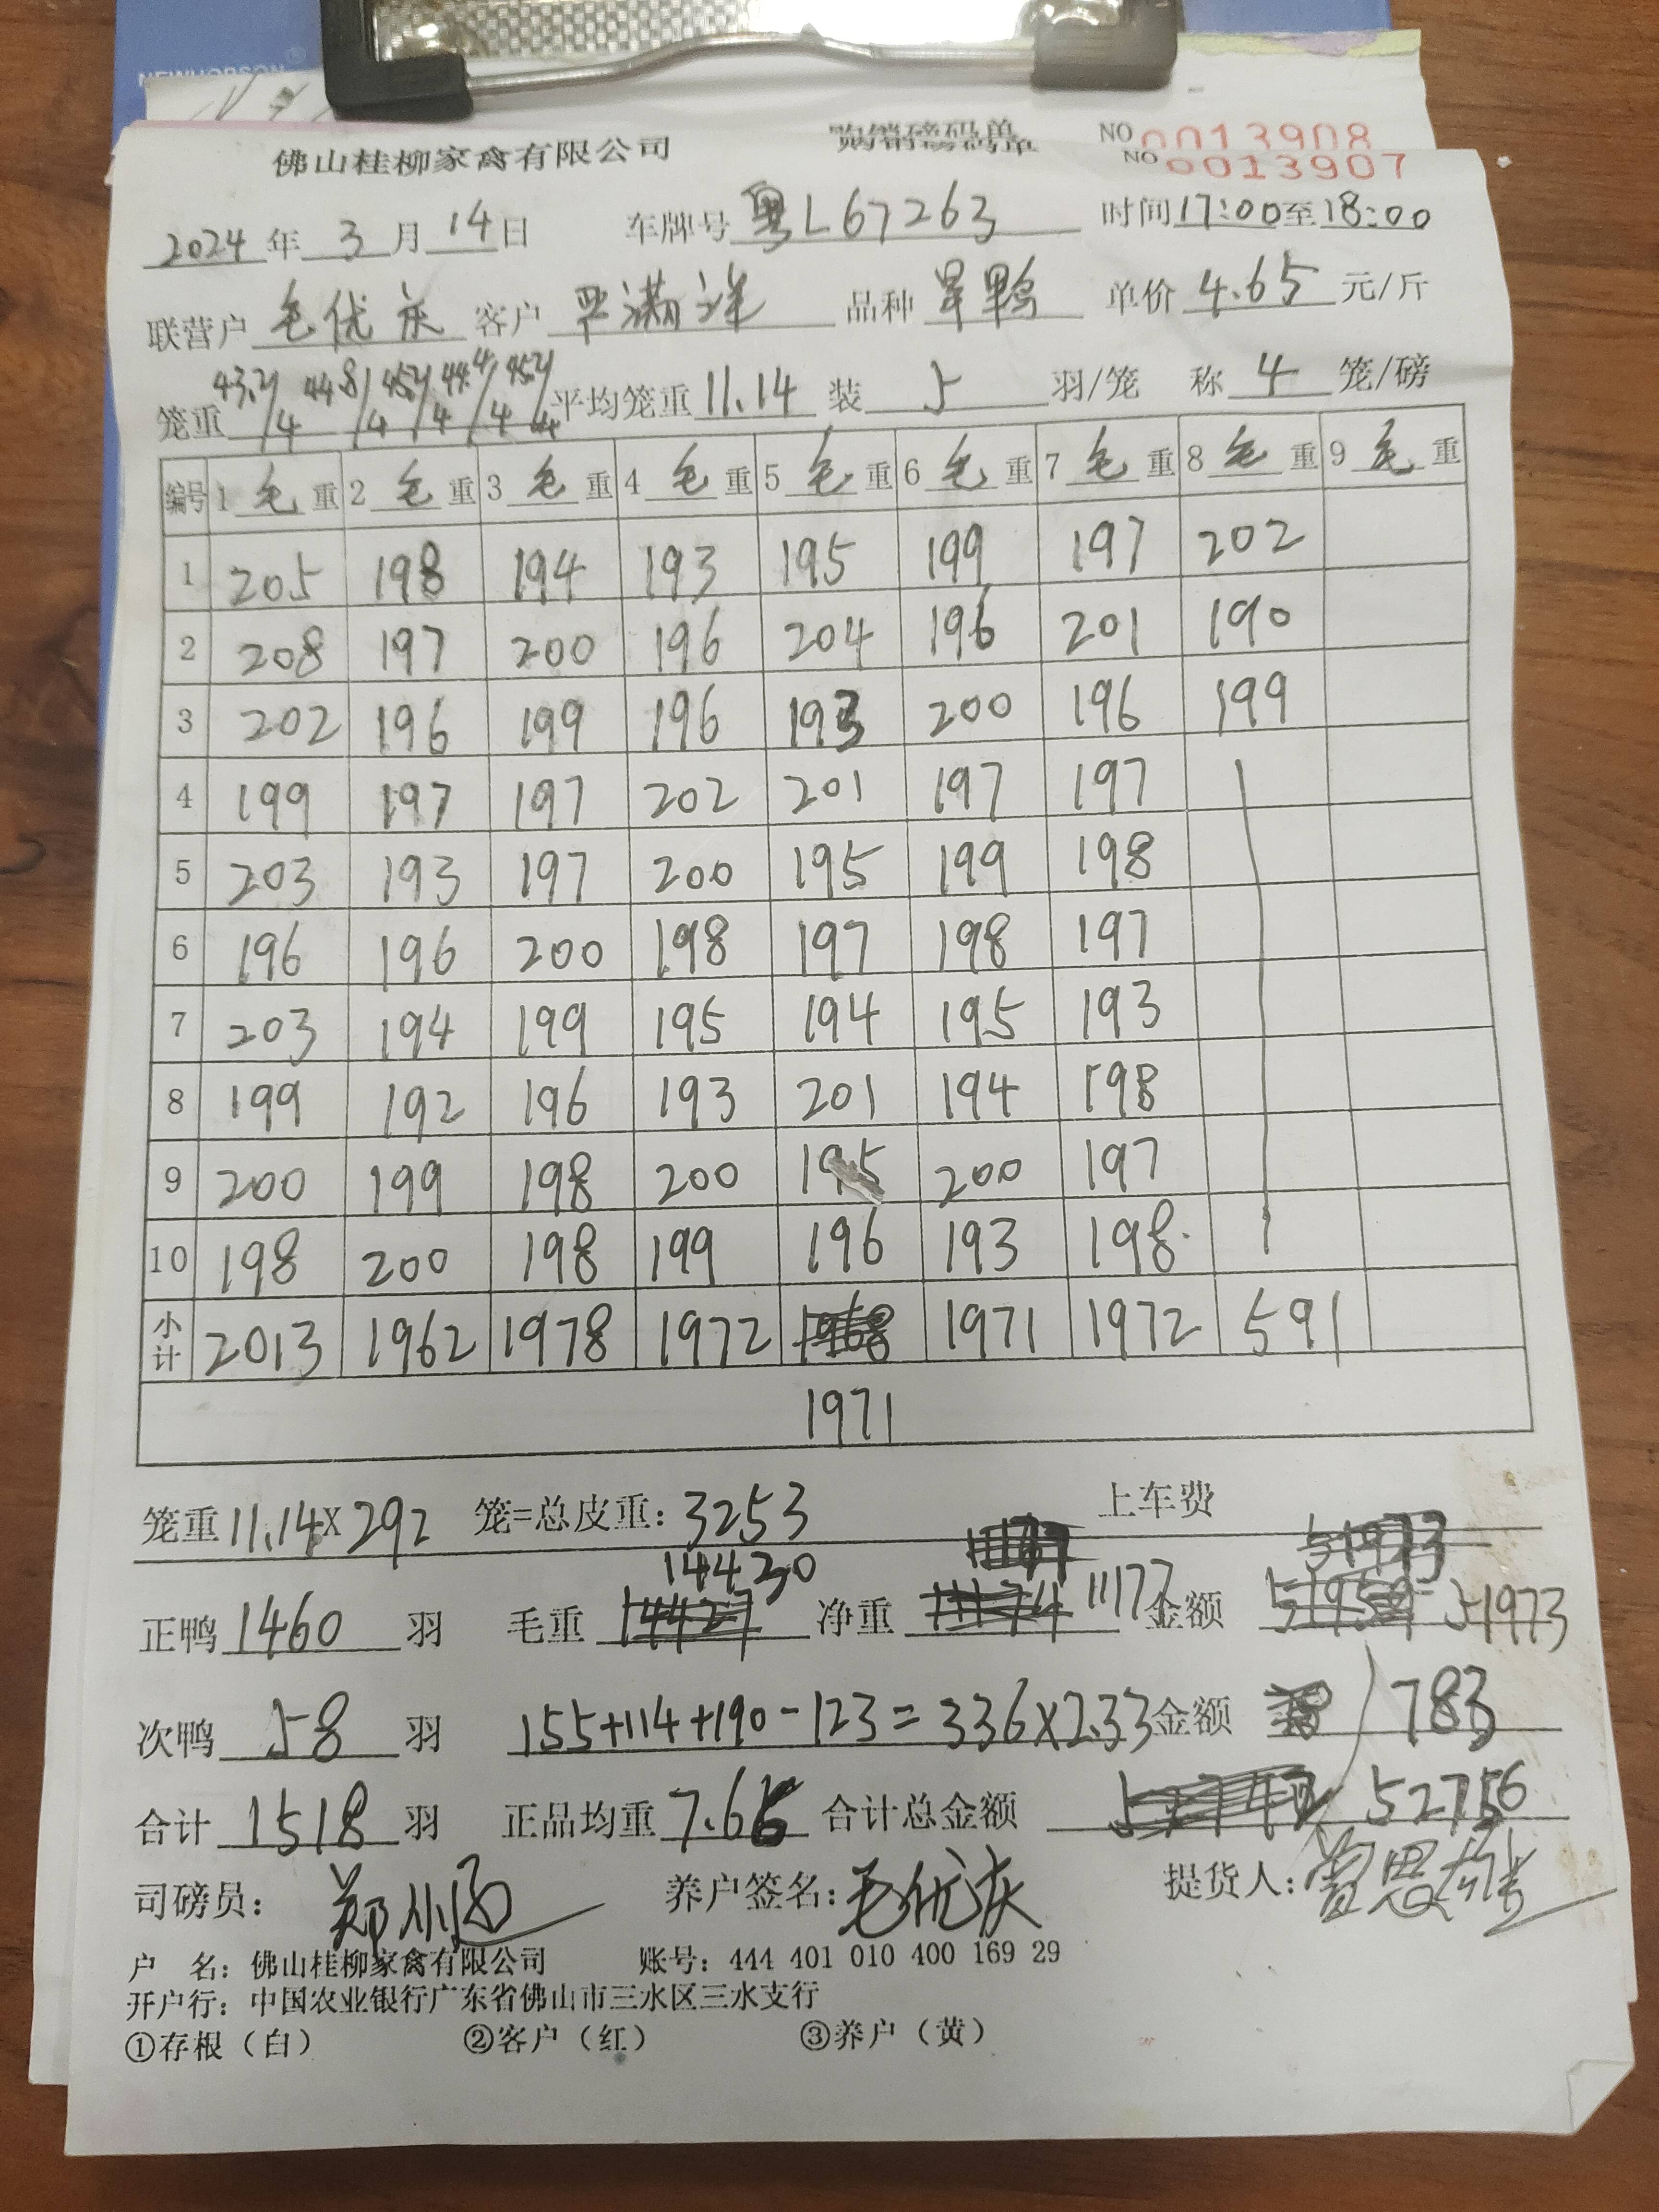 NEWHOPSON®
购销磅码单 NO 0013908
佛山桂柳家禽有限公司 NO 0013907
2024年 3月 14日 车牌号 粤L67263 时间17:00至18:00
联营户 毛优庆 客户 严满洋 品种 旱鸭 单价 4.65 元/斤
笼重 43.2/4 44.8/4 45.2/4 44.4/4 45.2/4 平均笼重 11.14 装 5 羽/笼 称 4 笼/磅
编号 1 毛 重 2 毛 重 3 毛 重 4 毛 重 5 毛 重 6 毛 重 7 毛 重 8 毛 重 9 毛 重
1 205 198 194 193 195 199 197 202
2 208 197 200 196 204 196 201 190
3 202 196 199 196 193 200 196 199
4 199 197 197 202 201 197 197
5 203 193 197 200 195 199 198
6 196 196 200 198 197 198 197
7 203 194 199 195 194 195 193
8 199 192 196 193 201 194 198
9 200 199 198 200 195 200 197
10 198 200 198 199 196 193 198
小计 2013 1962 1978 1972 1968 1971 1972 591
1971
笼重 11.14×292 笼=总皮重: 3253 上车费
14430 51973
正鸭 1460 羽 毛重 14427 净重 11174 11177 金额 51973
次鸭 58 羽 155+114+190-123=336×2.33 金额 783
合计 1518 羽 正品均重 7.66 合计总金额 52756
司磅员: 养户签名: 毛优庆 提货人: 曾思雄
户 名: 佛山桂柳家禽有限公司 账号: 444 401 010 400 169 29
开户行: 中国农业银行广东省佛山市三水区三水支行
①存根（白） ②客户（红） ③养户（黄）